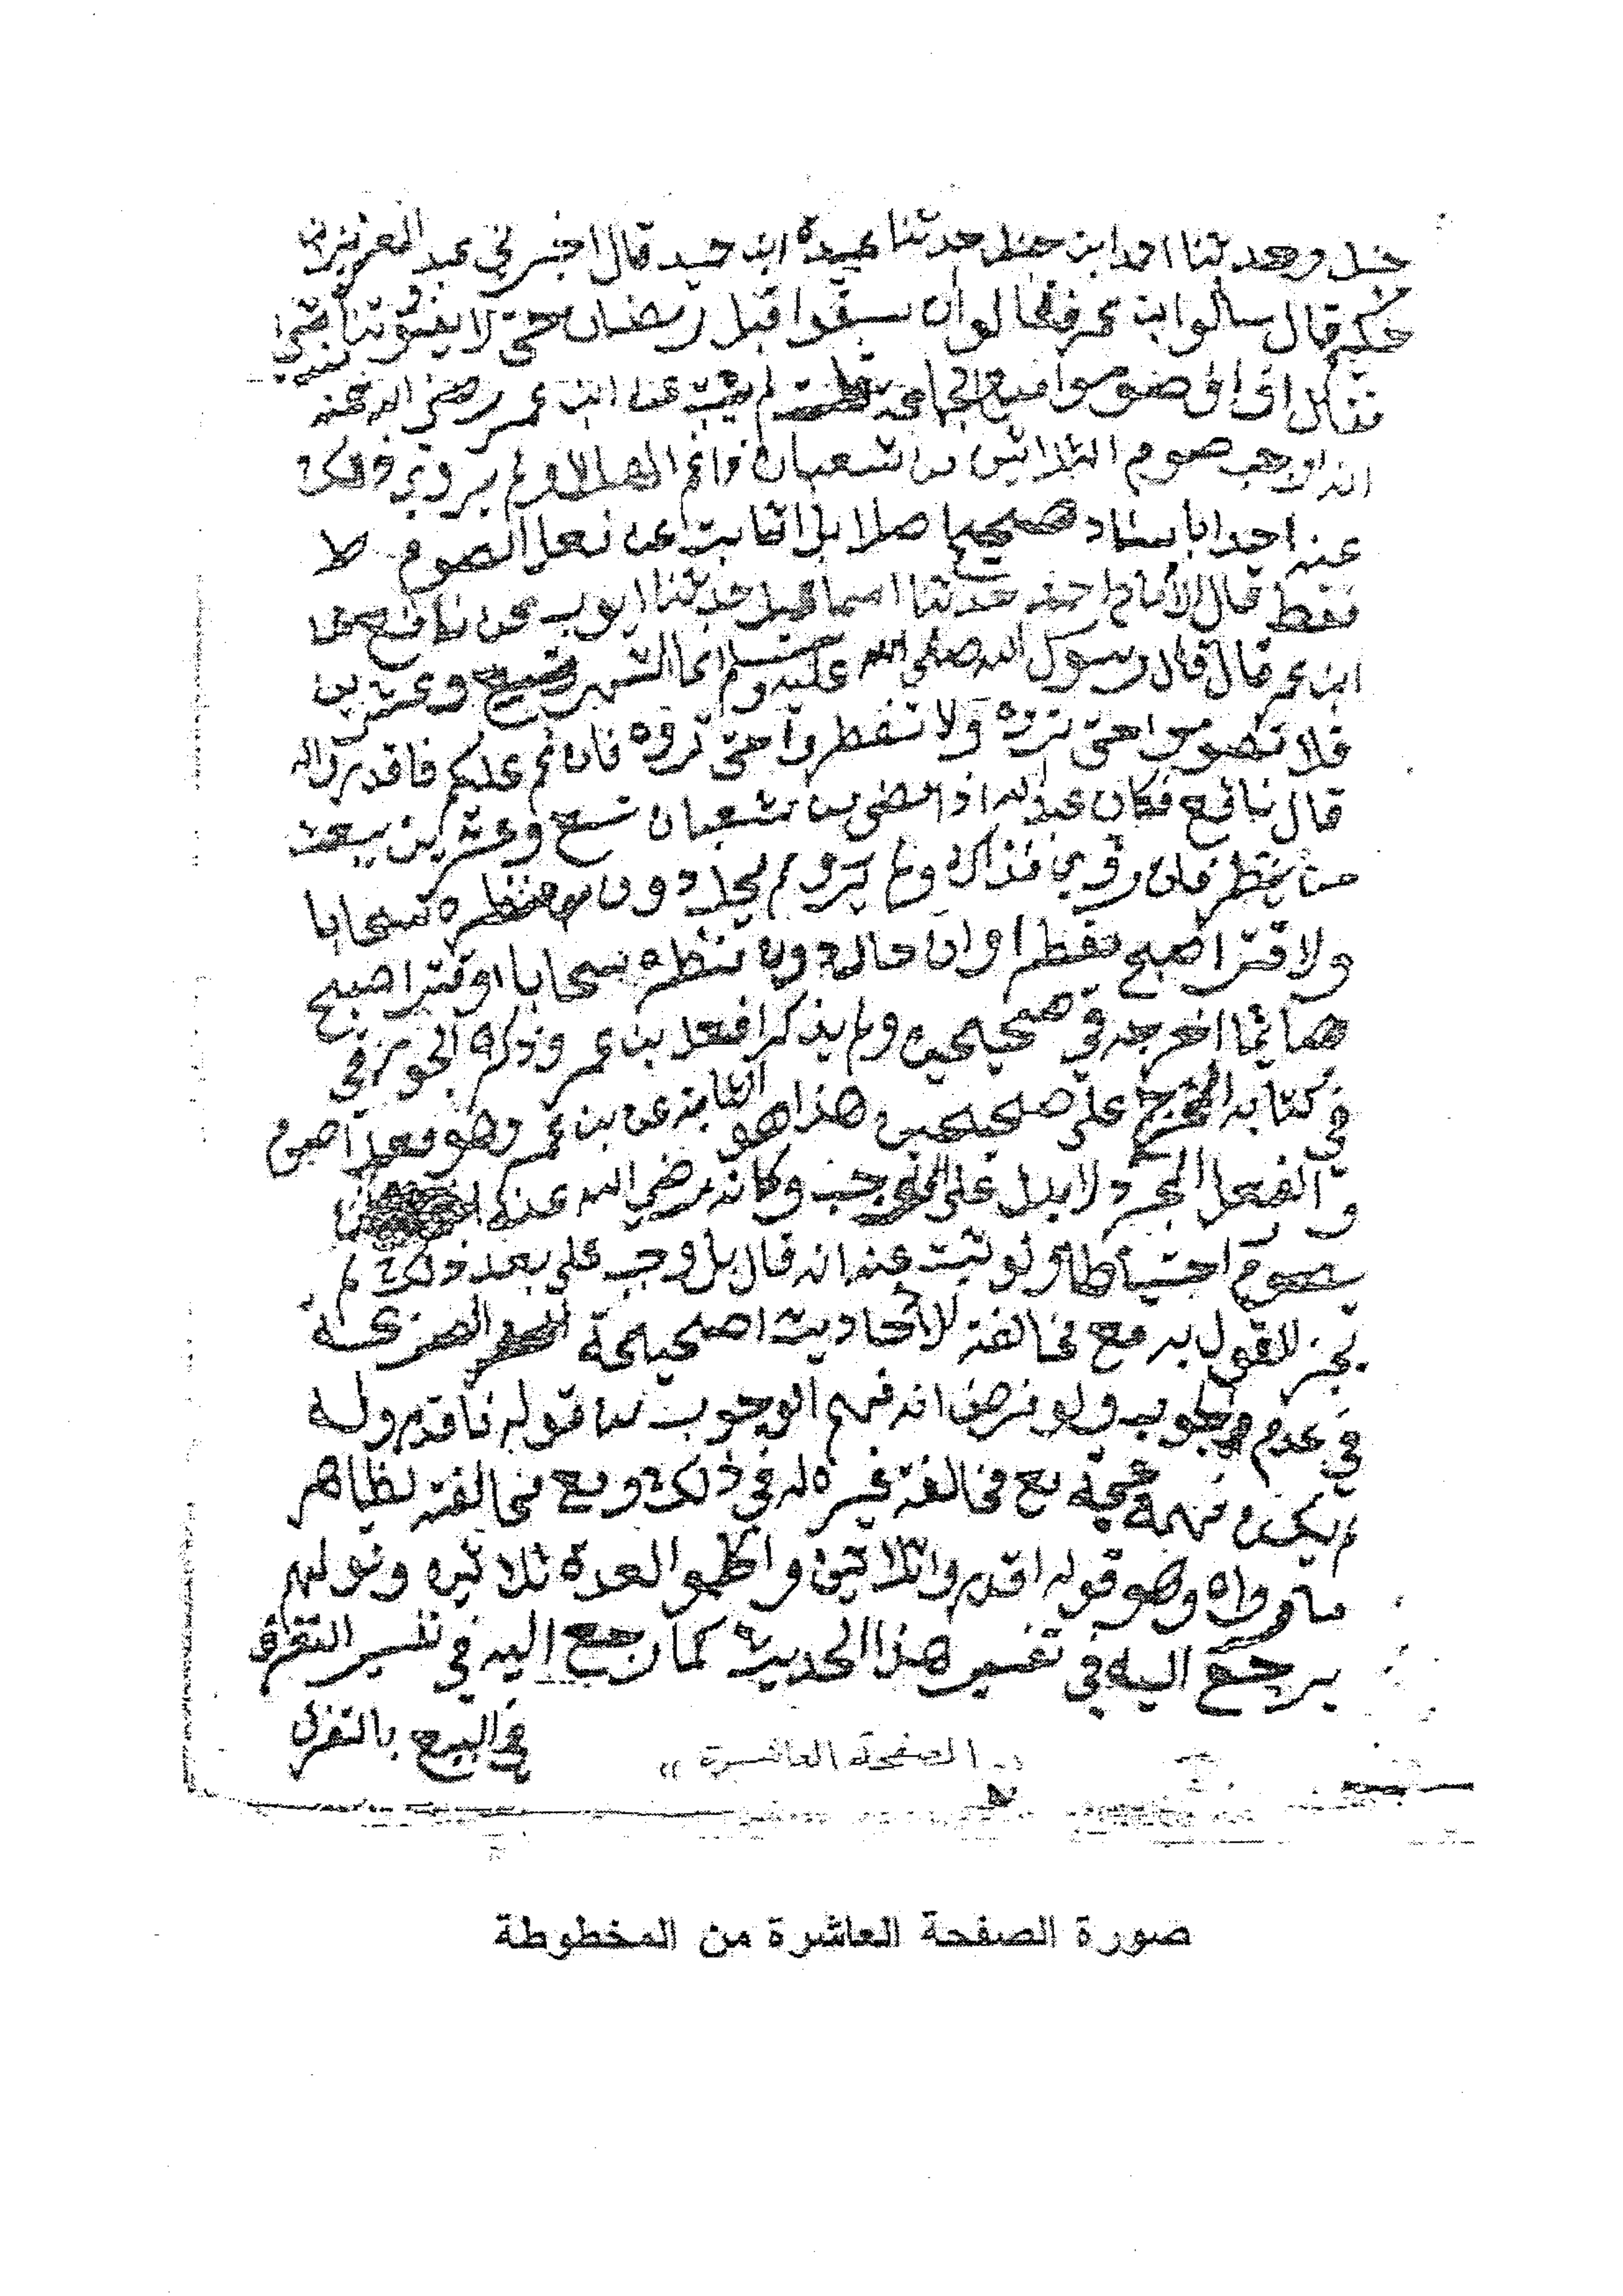 حنبل وحدثنا احمد ابن حنبل حدثنا عبيدة ابن حميد قال اخبرني عبد العزيز بن
حكيم قال سالوا ابن عمر فقالوا أن نسبقوا قبل رمضان حتى لا يفوتنا منه شي
فقال اف اف صوموا مع الجماعه فلت لم يثبت عن ابن عمر رضي الله عنه
انه اوجب صوم الثلاثين من شعبان واغم الهلال ولم يروى ذلك
عنه احد باسناد صحيح اصلا بل الثابت عن فعل الصوم
فقط قال الأمام احمد حدثنا اسماعيل حدثنا ايوب عن نافع عن
ابن عمر قال قال رسول الله صلى الله عليه وسلم انما الشهر تسع وعشرين
فلا تصوموا حتى تروه ولا تفطروا حتى تروه فان غم عليكم فاقدروا له
قال نافع فكان عبد الله اذا مضى من شعبان تسع وعشرين يبعث
من ينظر فان روي فذاك ولم ير ولم يحل دون منظره سحابا
ولا قتر اصبح مفطرا وان حال دون منظره سحابا او قتر اصبح
صائما اخرجه في صحيحين ولم يذكرا فعل بن عمر وذكره الجوزقي
في كتابه المخرج على صحيحين وهذا هو الثابت عن بن عمر وهو فعل اصوم
و الفعل المجرد لا يدل على الوجب وكانه رضي الله عنه
يصوم احتياطا ولو ثبت عنه انه قال بل وجب على بعد ذلك لم
يجز لاقول به مع مخالفته للأحاديث اصحيحة الصريحة
في عدم وجلوب ولو فرض انه فهم الوجوب من قوله فاقدروله
لم يكن فهمه حجة مع مخالفة غيره له في ذلك ومع مخالفته لظاهر
ما رواه وهو قوله اقدروا ثلاثين واكملوا العدة ثلاثين وقولهم
يرجع اليه في تفسير هذا الحديث كما رجع اليه في تفسير التفرق
في البيع بالتفرق
« الصفحة العاشرة »
صورة الصفحة العاشرة من المخطوطة